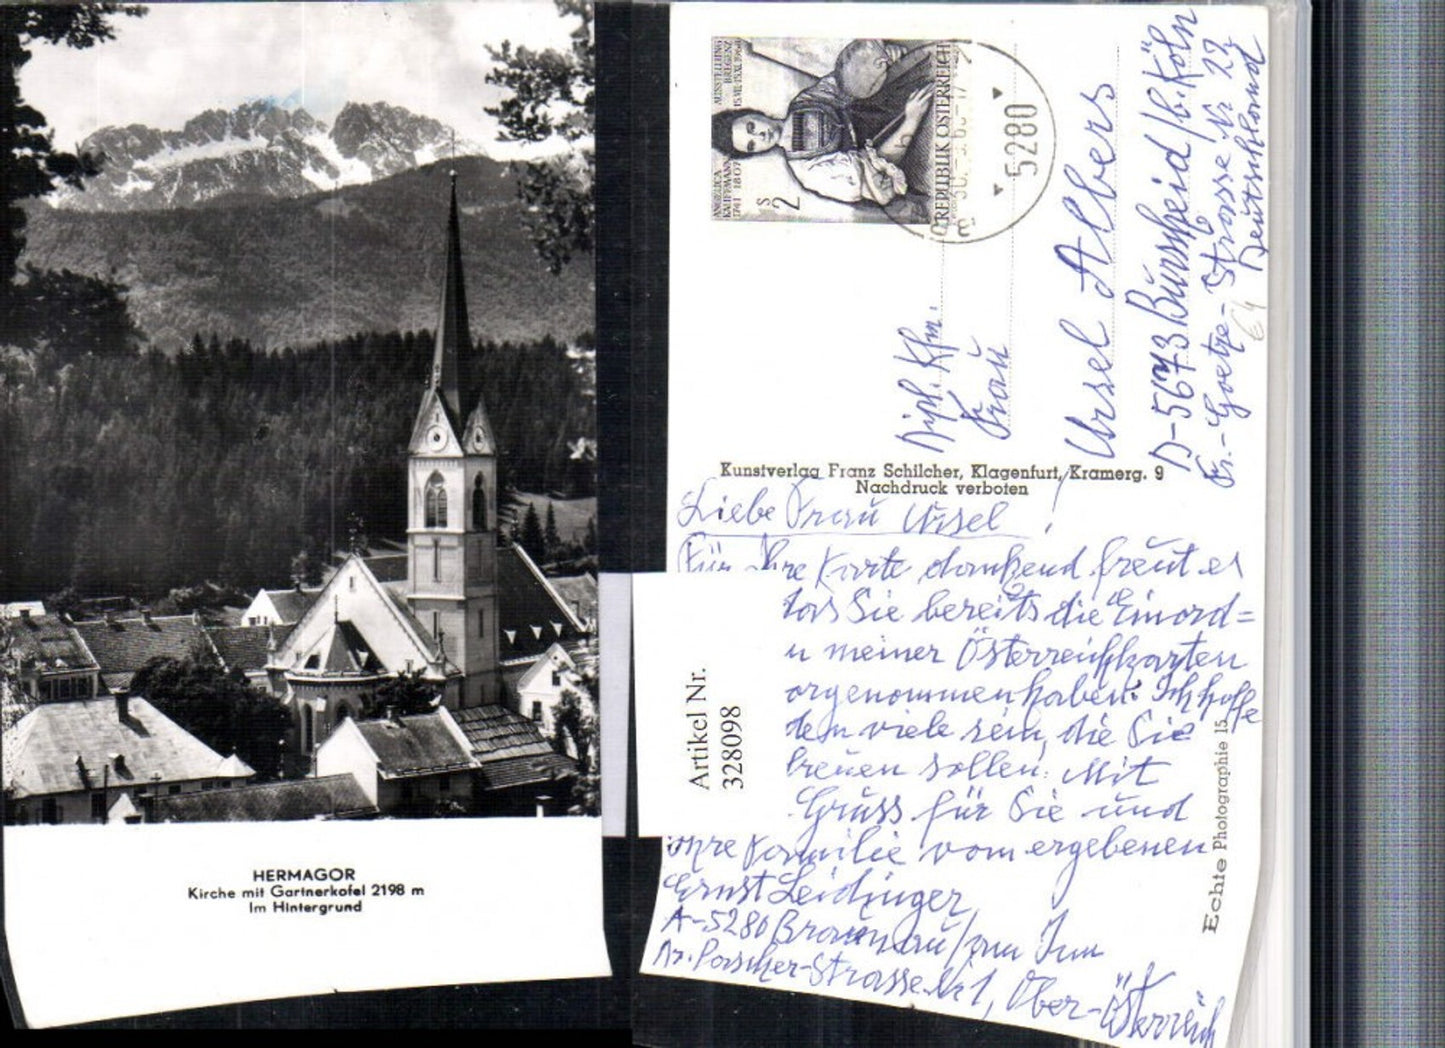 HERMAGOR
Kirche mit Gartnerkofel 2198 m
Im Hintergrund
AUSSTELLUNG
BREGENZ
ANGELICA
KAUFFMANN
1741 1807
S 2
REPUBLIK ÖSTERREICH
5280
Dipl. Kfm.
Frau
Ursel Albers
D-5673 Burscheid/b. Köln
Fr.-Goetze-Strasse Nr 22
Deutschland
Kunstverlag Franz Schilcher, Klagenfurt, Kramerg. 9
Nachdruck verboten
Liebe Frau Ursel!
Für Ihre Karte dankend freut es
Sie bereits die Einord=
n meiner Österreichkarten
genommen haben. Ich hoffe
viele sein, die Sie
freuen sollen. Mit
Gruss für Sie und
Ihre Familie vom ergebenen
Ernst Leidinger
A-5280 Braunau/am Inn
Strasse Nr 1, Ober-Österreich
Artikel Nr.
328098
Echte Photographie 15